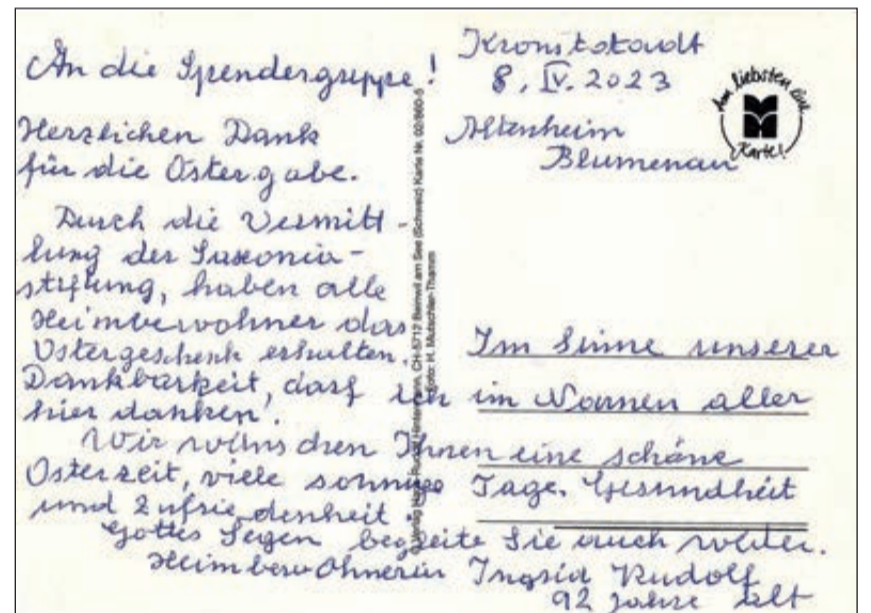 An die Spendergruppe!
Kronstatadt
8. IV. 2023
Altenheim
Blumenau
Am liebsten eine
Karte!
Herzlichen Dank
für die Ostergabe.
Durch die Vermitt-
lung der Saxonia-
stiftung, haben alle
Heimbewohner das
Ostergeschenk erhalten. Im Sinne unserer
Dankbarkeit, darf ich im Namen aller
hier danken.
Wir wünschen Ihnen eine schöne
Osterzeit, viele sonnige Tage. Gesundheit
und Zufriedenheit.
Gottes Segen begleite Sie auch weiter.
Heimbewohnerin Ingrid Rudolf
92 Jahre alt
Verlag Hans-Rudolf Hintermann, CH-5712 Beinwil am See (Schweiz) Karte Nr.
Foto: H. Mutschler-Thamm